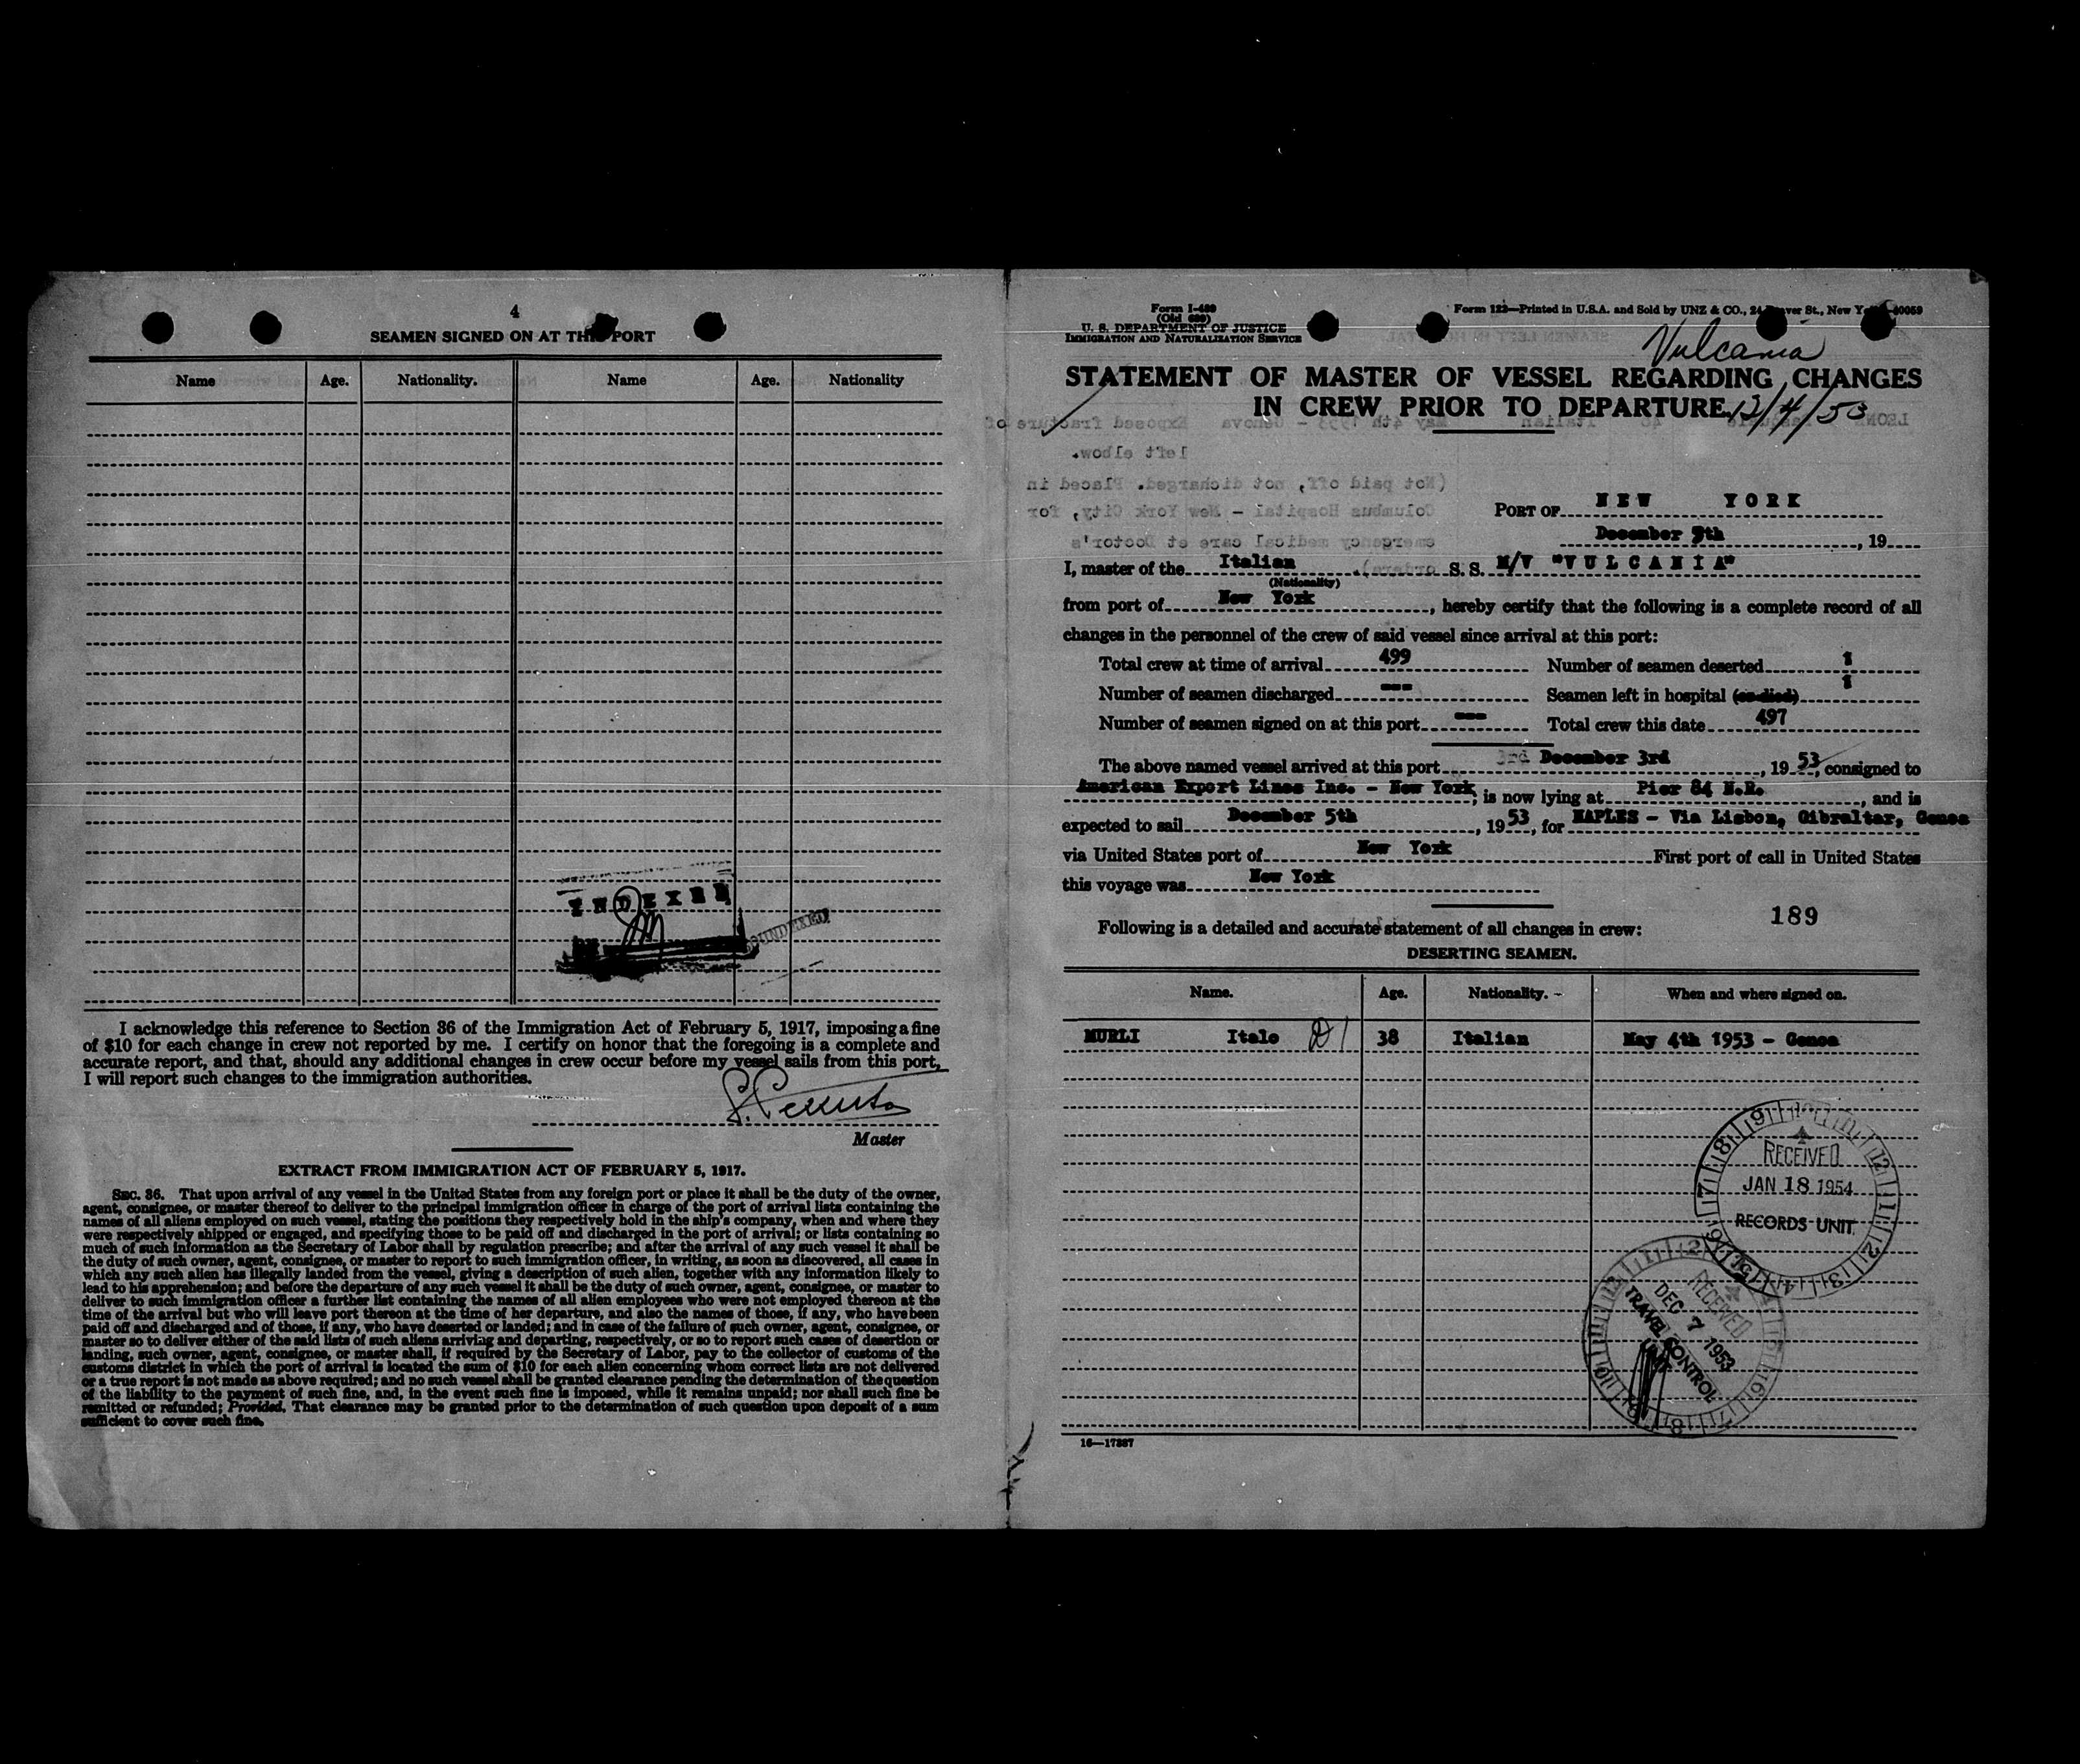 4
SEAMEN SIGNED ON AT THIS PORT
Name Age. Nationality. Name Age. Nationality
INDEXED
I acknowledge this reference to Section 36 of the Immigration Act of February 5, 1917, imposing a fine
of $10 for each change in crew not reported by me. I certify on honor that the foregoing is a complete and
accurate report, and that, should any additional changes in crew occur before my vessel sails from this port,
I will report such changes to the immigration authorities.
Master
EXTRACT FROM IMMIGRATION ACT OF FEBRUARY 5, 1917.
SEC. 36. That upon arrival of any vessel in the United States from any foreign port or place it shall be the duty of the owner,
agent, consignee, or master thereof to deliver to the principal immigration officer in charge of the port of arrival lists containing the
names of all aliens employed on such vessel, stating the positions they respectively hold in the ship's company, when and where they
were respectively shipped or engaged, and specifying those to be paid off and discharged in the port of arrival; or lists containing so
much of such information as the Secretary of Labor shall by regulation prescribe; and after the arrival of any such vessel it shall be
the duty of such owner, agent, consignee, or master to report to such immigration officer, in writing, as soon as discovered, all cases in
which any such alien has illegally landed from the vessel, giving a description of such alien, together with any information likely to
lead to his apprehension; and before the departure of any such vessel it shall be the duty of such owner, agent, consignee, or master to
deliver to such immigration officer a further list containing the names of all alien employees who were not employed thereon at the
time of the arrival but who will leave port thereon at the time of her departure, and also the names of those, if any, who have been
paid off and discharged and of those, if any, who have deserted or landed; and in case of the failure of such owner, agent, consignee, or
master so to deliver either of the said lists of such aliens arriving and departing, respectively, or so to report such cases of desertion or
landing, such owner, agent, consignee, or master shall, if required by the Secretary of Labor, pay to the collector of customs of the
customs district in which the port of arrival is located the sum of $10 for each alien concerning whom correct lists are not delivered
or a true report is not made as above required; and no such vessel shall be granted clearance pending the determination of the question
of the liability to the payment of such fine, and, in the event such fine is imposed, while it remains unpaid; nor shall such fine be
remitted or refunded; Provided, That clearance may be granted prior to the determination of such question upon deposit of a sum
sufficient to cover such fine.
Form I-489
(Old 689)
U. S. DEPARTMENT OF JUSTICE
IMMIGRATION AND NATURALIZATION SERVICE
Form 122—Printed in U.S.A. and Sold by UNZ & CO., 24 St., New
Vulcania
STATEMENT OF MASTER OF VESSEL REGARDING CHANGES
IN CREW PRIOR TO DEPARTURE 12/4/53
PORT OF NEW YORK
December 5th, 19
I, master of the Italian S. S. M/V "VULCANIA"
(Nationality)
from port of New York, hereby certify that the following is a complete record of all
changes in the personnel of the crew of said vessel since arrival at this port:
Total crew at time of arrival 499 Number of seamen deserted 1
Number of seamen discharged --- Seamen left in hospital (or died) 1
Number of seamen signed on at this port --- Total crew this date 497
The above named vessel arrived at this port December 3rd, 19 53, consigned to
American Export Lines Inc. - New York, is now lying at Pier 84 N.R., and is
expected to sail December 5th, 19 53, for NAPLES - Via Lisbon, Gibraltar, Genoa
via United States port of New York First port of call in United States
this voyage was New York
189
Following is a detailed and accurate statement of all changes in crew:
DESERTING SEAMEN.
Name. Age. Nationality. When and where signed on.
MURLI Italo D1 38 Italian May 4th 1953 - Genoa
RECEIVED
JAN 18 1954
RECORDS UNIT
RECEIVED
DEC 7 1953
TRAVEL CONTROL
UNIT
16—17387